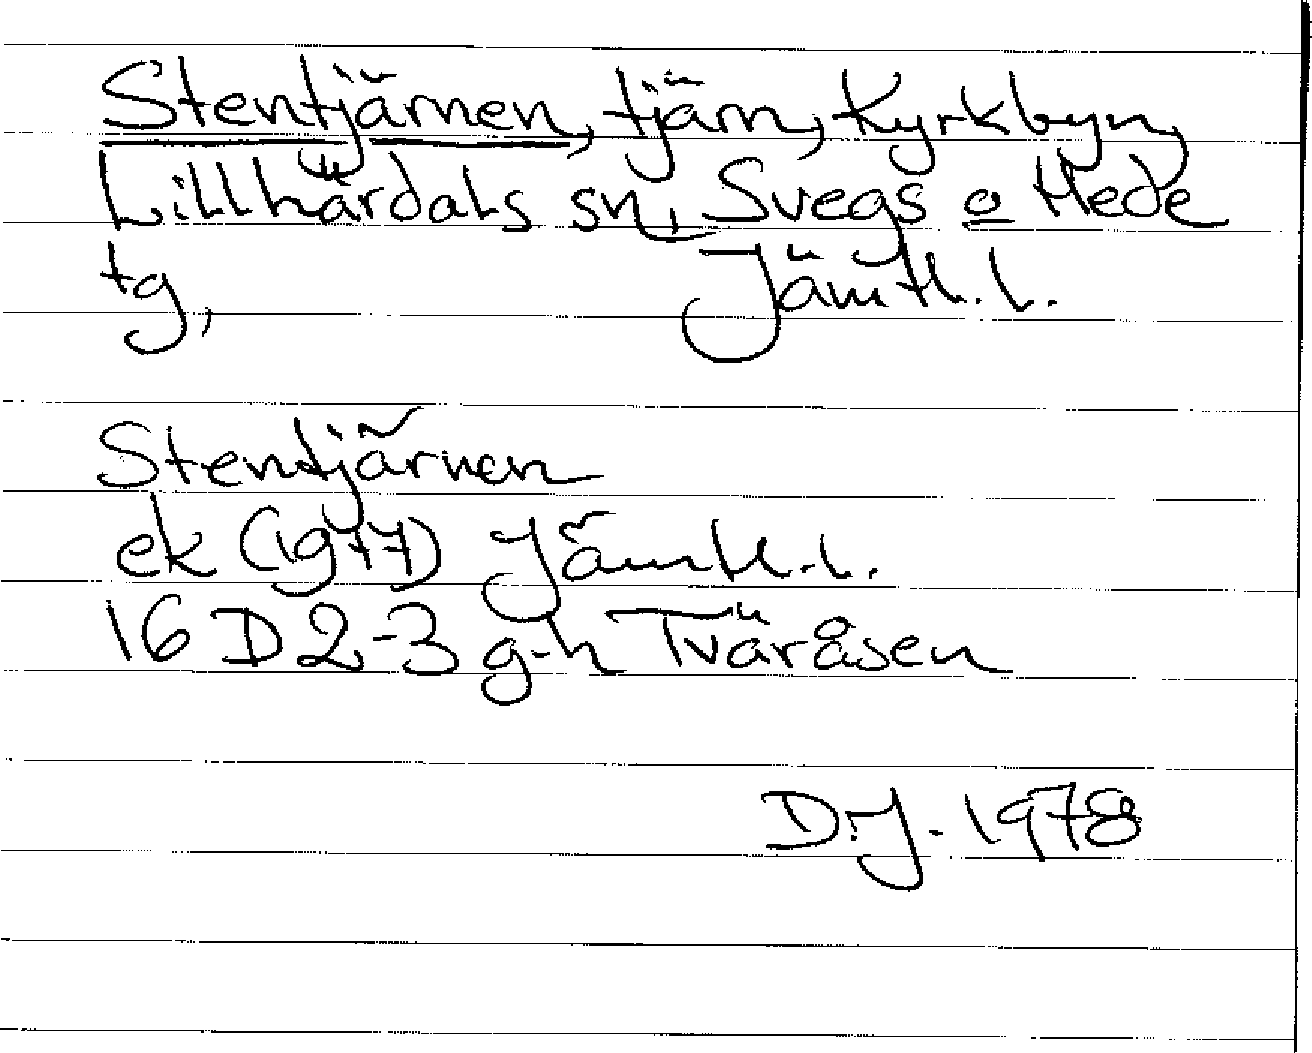 Stentjärnen, tjärn, Kyrkbyn,
Lillhärdals sn, Svegs o Hede
tg, Jämtl. l.
Stentjärnen
ek (1977) Jämtl. l.
16 D 2-3 g-h Tväråsen
D.J. 1978